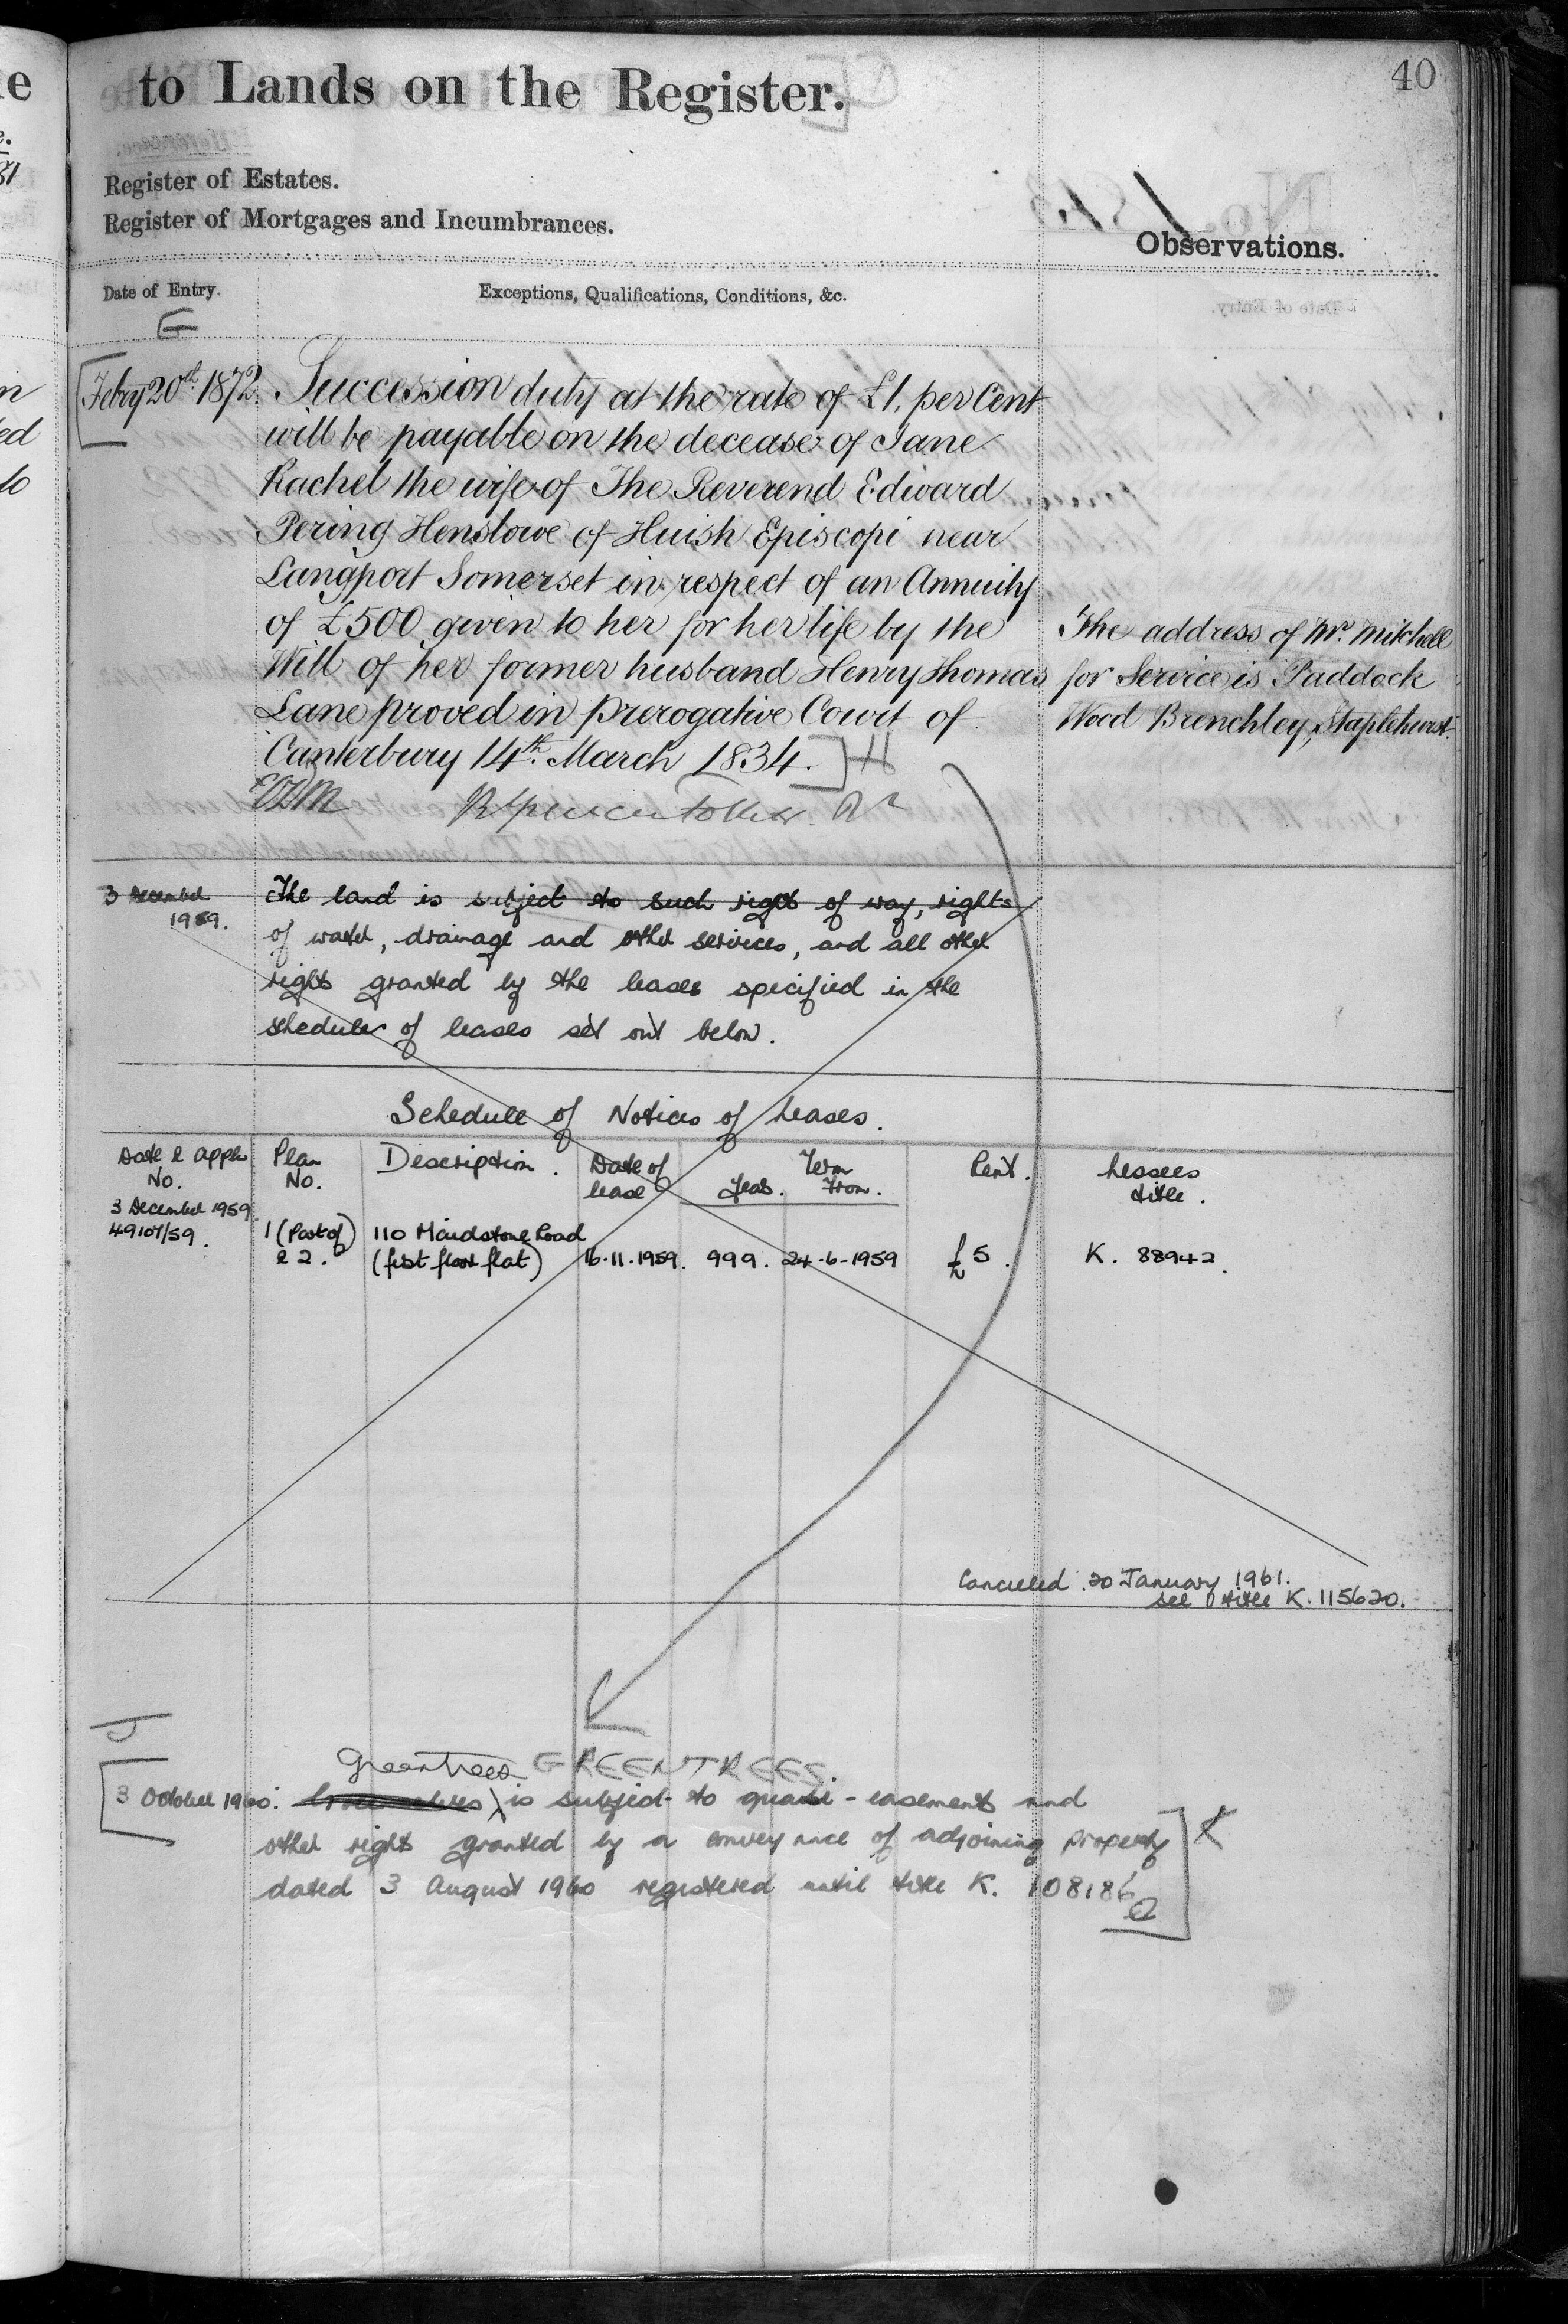 40
to Lands on the Register.
Register of Estates.
Register of Mortgages and Incumbrances.
Observations.
Date of Entry.
Exceptions, Qualifications, Conditions, &c.
G
Febry 20th 1872. Succession duty at the rate of £1. per Cent
will be payable on the decease of Jane
Rachel the wife of The Reverend Edward
Pering Henslowe of Huish Episcopi near
Langport Somerset in respect of an Annuity
of £500 given to her for her life by the
Will of her former husband Henry Thomas
Lane proved in Prerogative Court of
Canterbury 14th. March 1834. H
The address of Mr. Mitchell
for Service is Paddock
Wood Brenchley, Staplehurst.
3 December
1959.
The land is subject to such rights of way, rights
of water, drainage and other services, and all other
rights granted by the leases specified in the
schedule of leases set out below.
Schedule of Notices of Leases.
Date & Appln No.
Plan No.
Description.
Date of lease
Term
Years. From.
Rent.
Lessees title.
3 December 1959
49107/59.
1 (Part of)
& 2.
110 Maidstone Road
(first floor flat)
16.11.1959. 999. 24-6-1959 £5. K. 88942.
Cancelled 20 January 1961.
see title K. 115620.
J
Greentrees GREENTREES
3 October 1960. is subject to quasi-easements and
other rights granted by a conveyance of adjoining property K
dated 3 August 1960 registered until title K. 108186